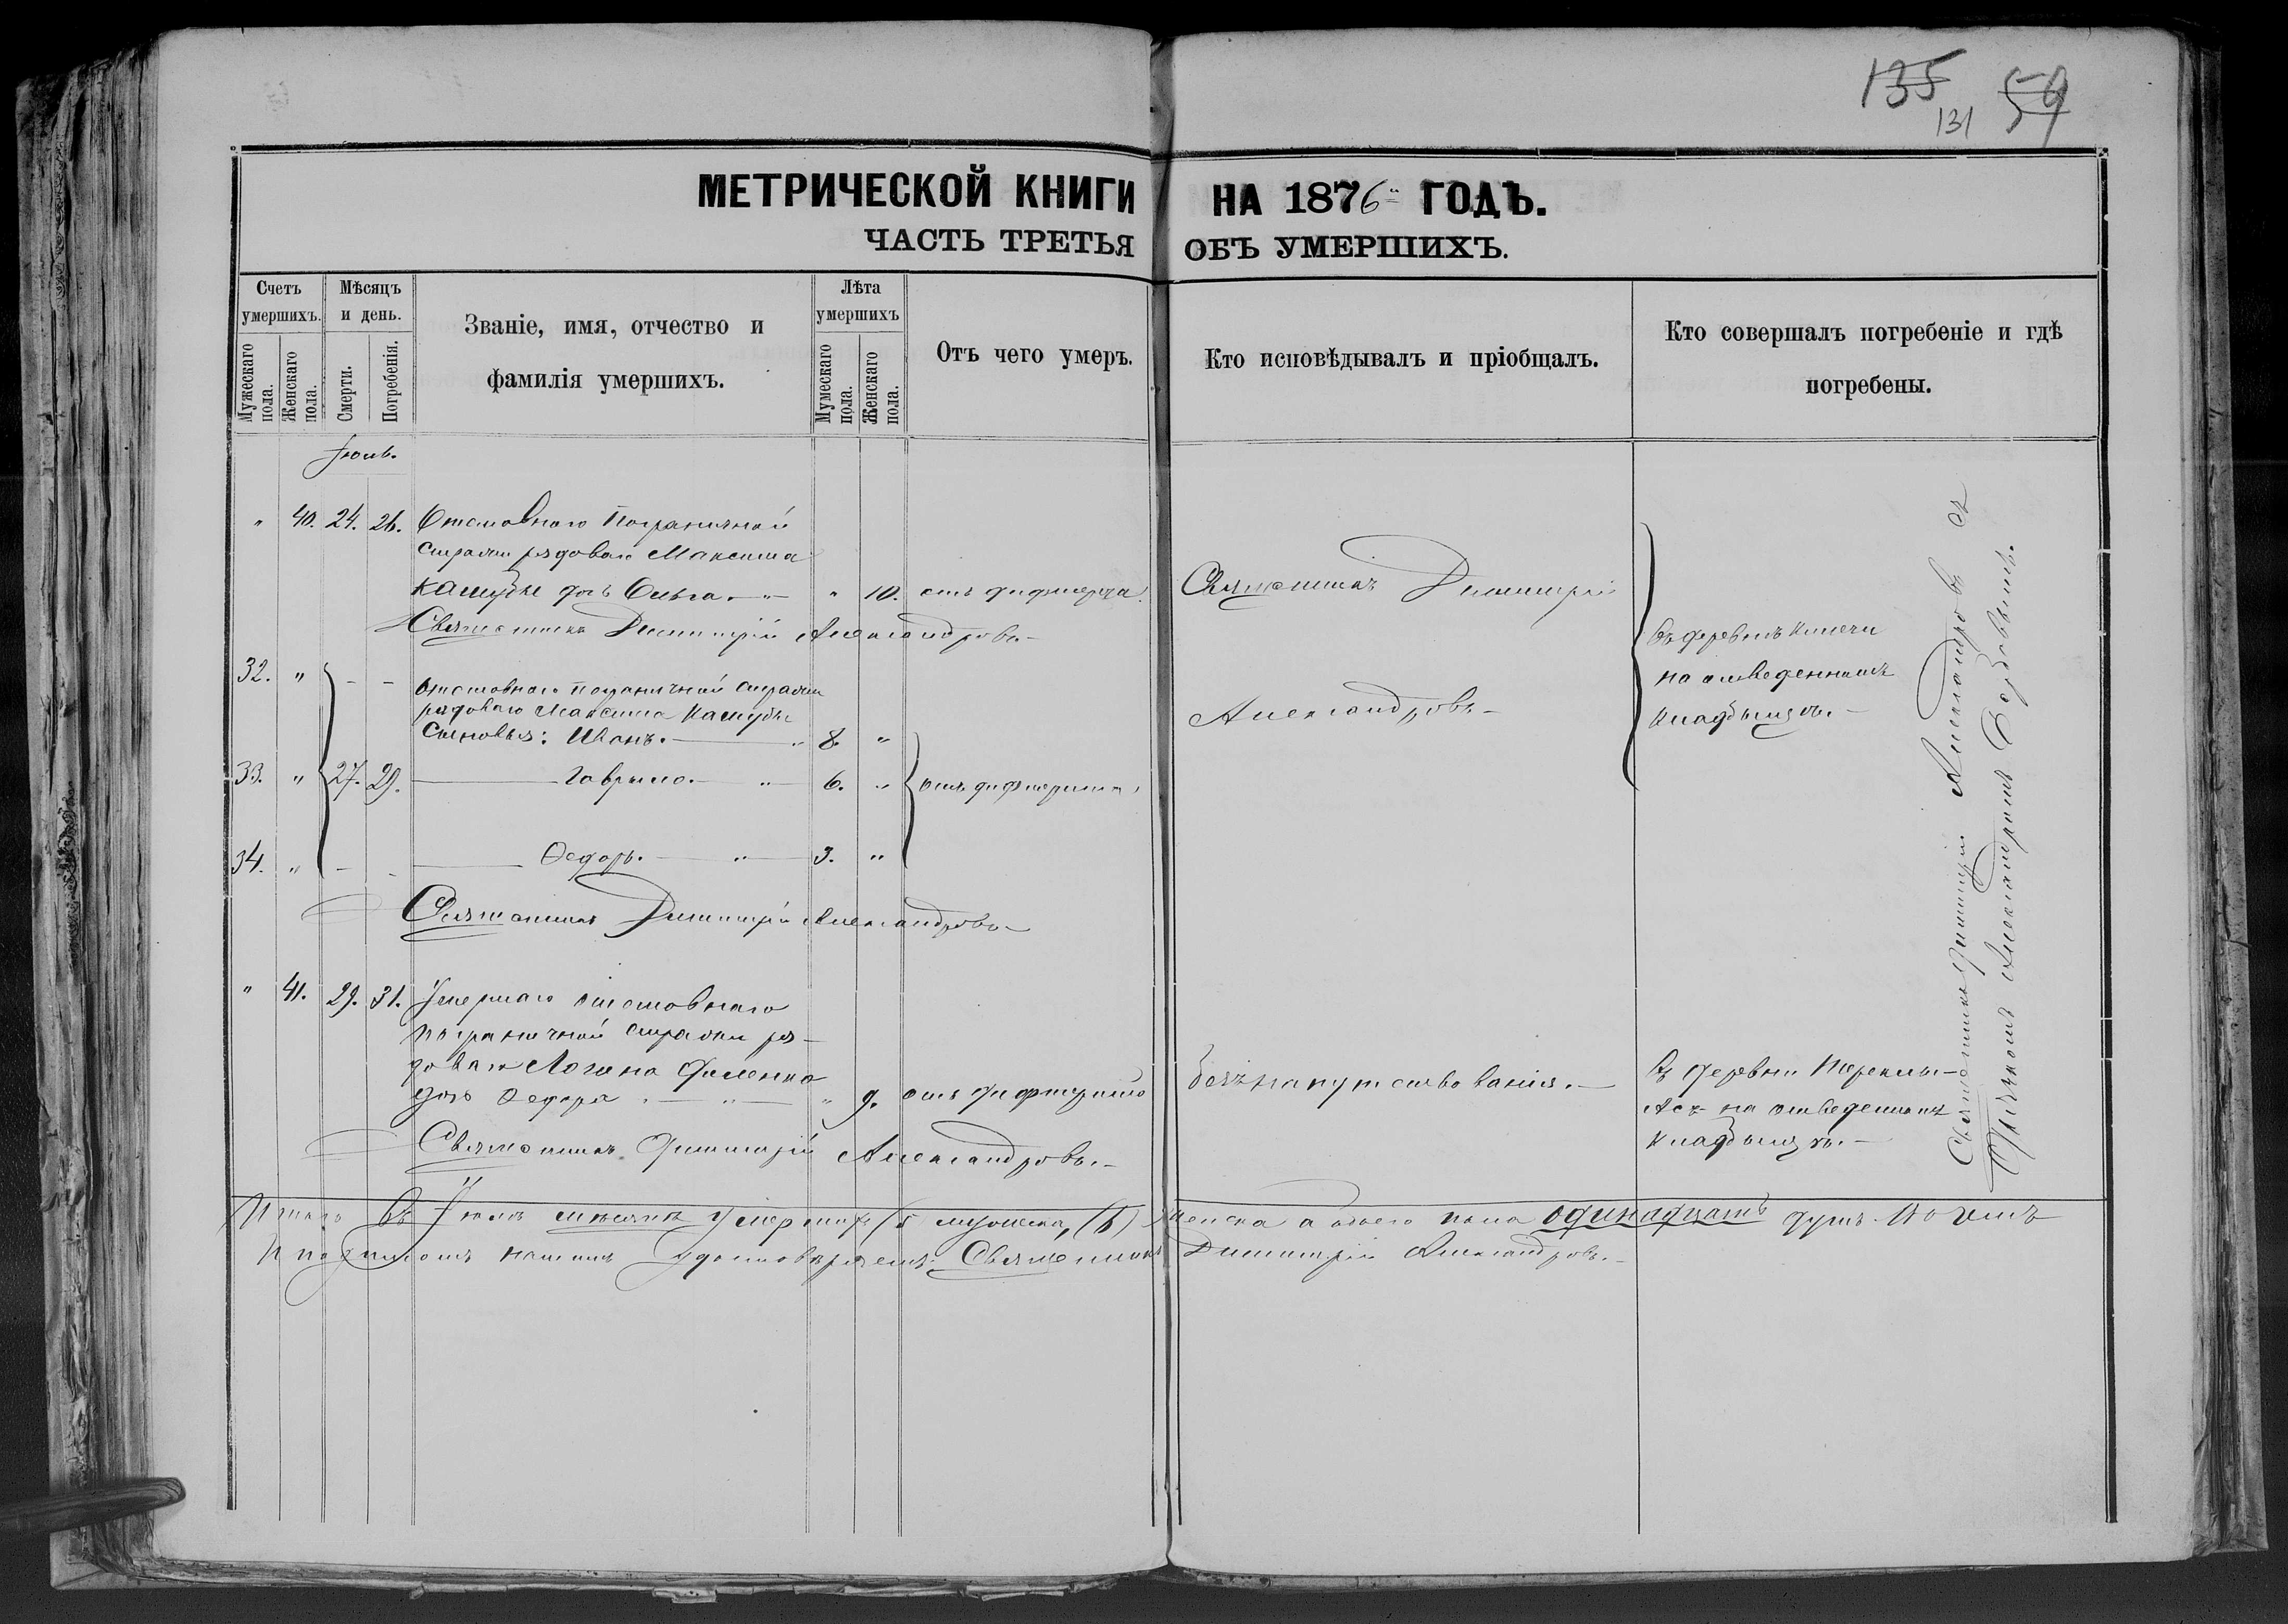 135
131 59
МЕТРИЧЕСКОЙ КНИГИ НА 1876 ГОДЪ.
ЧАСТЬ ТРЕТЬЯ ОБЪ УМЕРШИХЪ.
Счетъ умершихъ.
Мужескаго пола.
Женскаго пола.
Мѣсяцъ и день.
Смерти.
Погребенія.
Званіе, имя, отчество и
фамилія умершихъ.
Лѣта умершихъ
Мужескаго пола.
Женскаго пола.
Отъ чего умеръ.
Кто исповѣдывалъ и пріобщалъ.
Кто совершалъ погребеніе и гдѣ
погребены.
Іюль.
" 40. 24. 26. Отставного пограничной
стражи рядоваго Максима
дочь Ольга. " 10. отъ дифтерита.
Священникъ Димитрій Александровъ.
Священникъ Димитрій
Александровъ
въ деревнѣ
на отведенномъ
кладбищѣ.
32. " Отставного пограничной стражи
рядоваго Максима
сыновья: Иванъ. 8. "
33. " 27. 29. Гаврило. 6. " отъ дифтерита
34. " Ѳедоръ. 3. "
Священникъ Димитрій Александровъ
" 41. 29. 31. Умершаго отставнаго
пограничной стражи ря-
доваго Логина
дочь Ѳедора " 9. отъ дифтерита
безъ напутствованія.
въ деревни
на отведенномъ
кладбищѣ.
Священникъ Димитрій Александровъ.
Священникъ Димитрій Александровъ съ
Александромъ
Итого въ Іюлѣ мѣсяцѣ умерших (5 мужеска, (6) женска а обоего пола одинадцать душъ. Въ чемъ
и подписомъ нашимъ удостовѣряемъ: Священникъ Димитрій Александровъ.